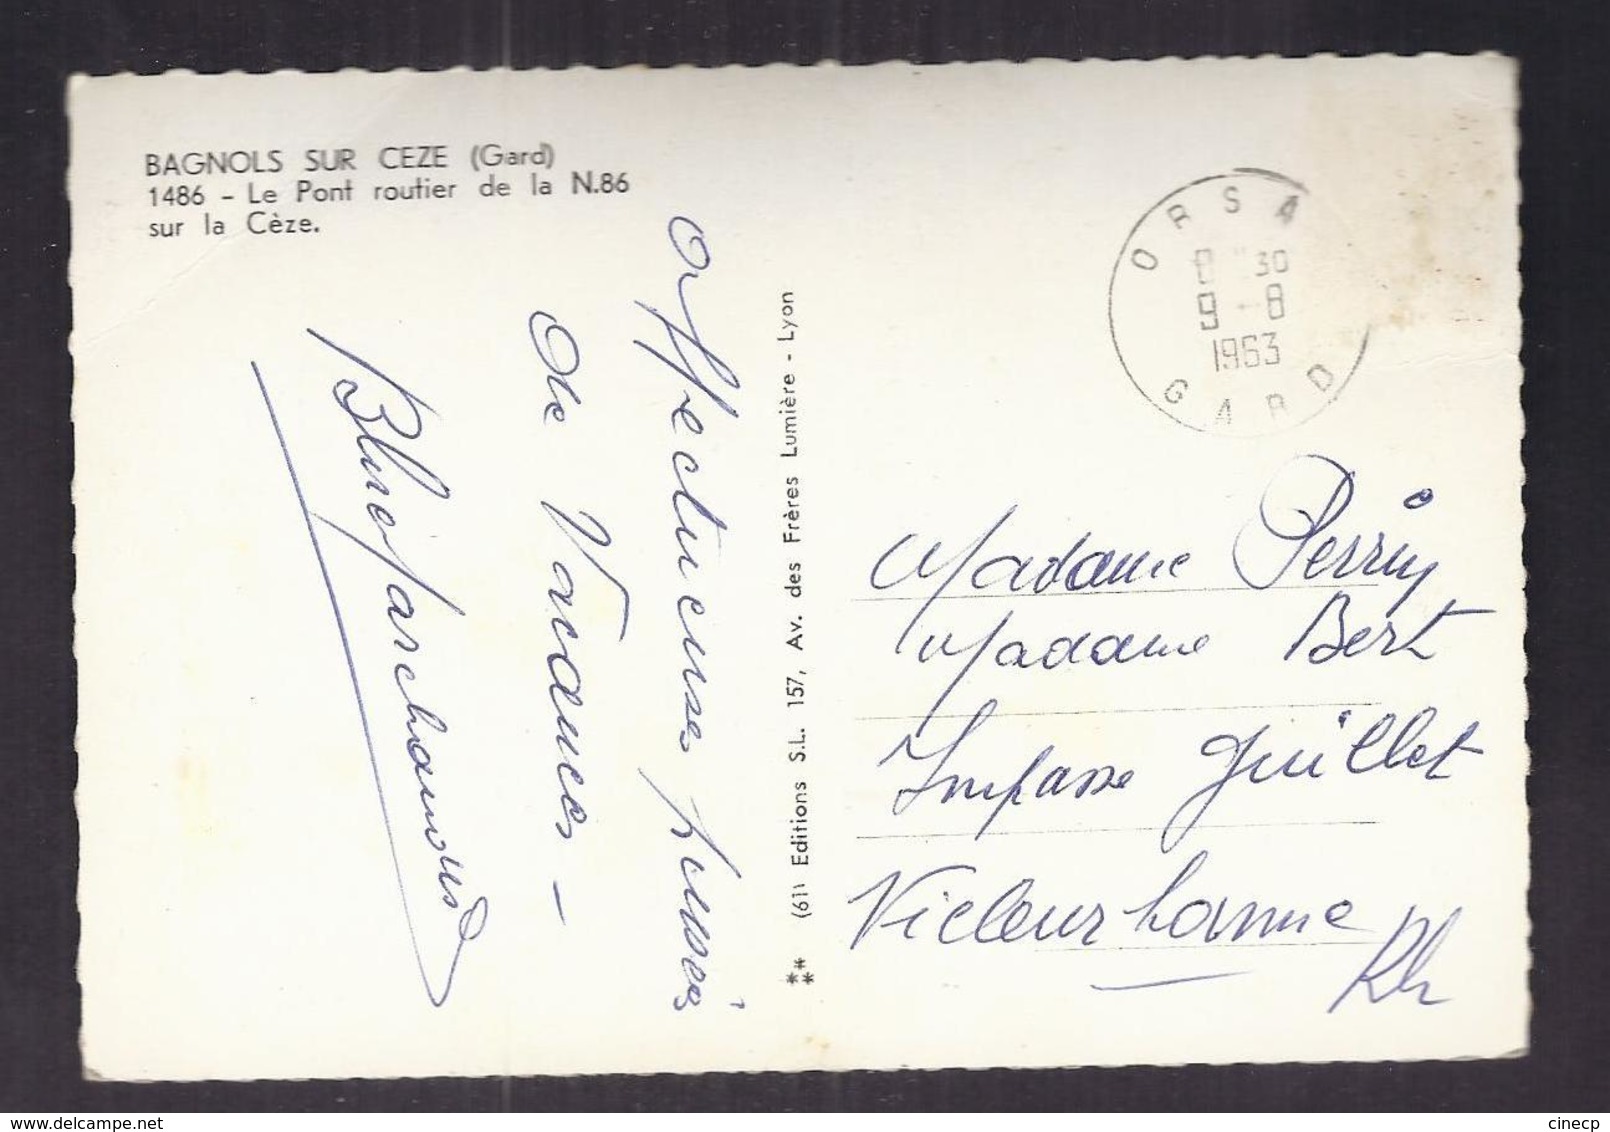 BAGNOLS SUR CEZE (Gard)
1486 - Le Pont routier de la N.86
sur la Cèze.
Affectueuses pensées
de Vacances -
** (61) Editions S.L. 157, Av. des Frères Lumière - Lyon
ORSA
30
9 - 8
1963
GARD
Madame Perrin
Madame Bert
Impasse Guillet
Villeurbanne
Rh
www.delcampe.net
cinecp